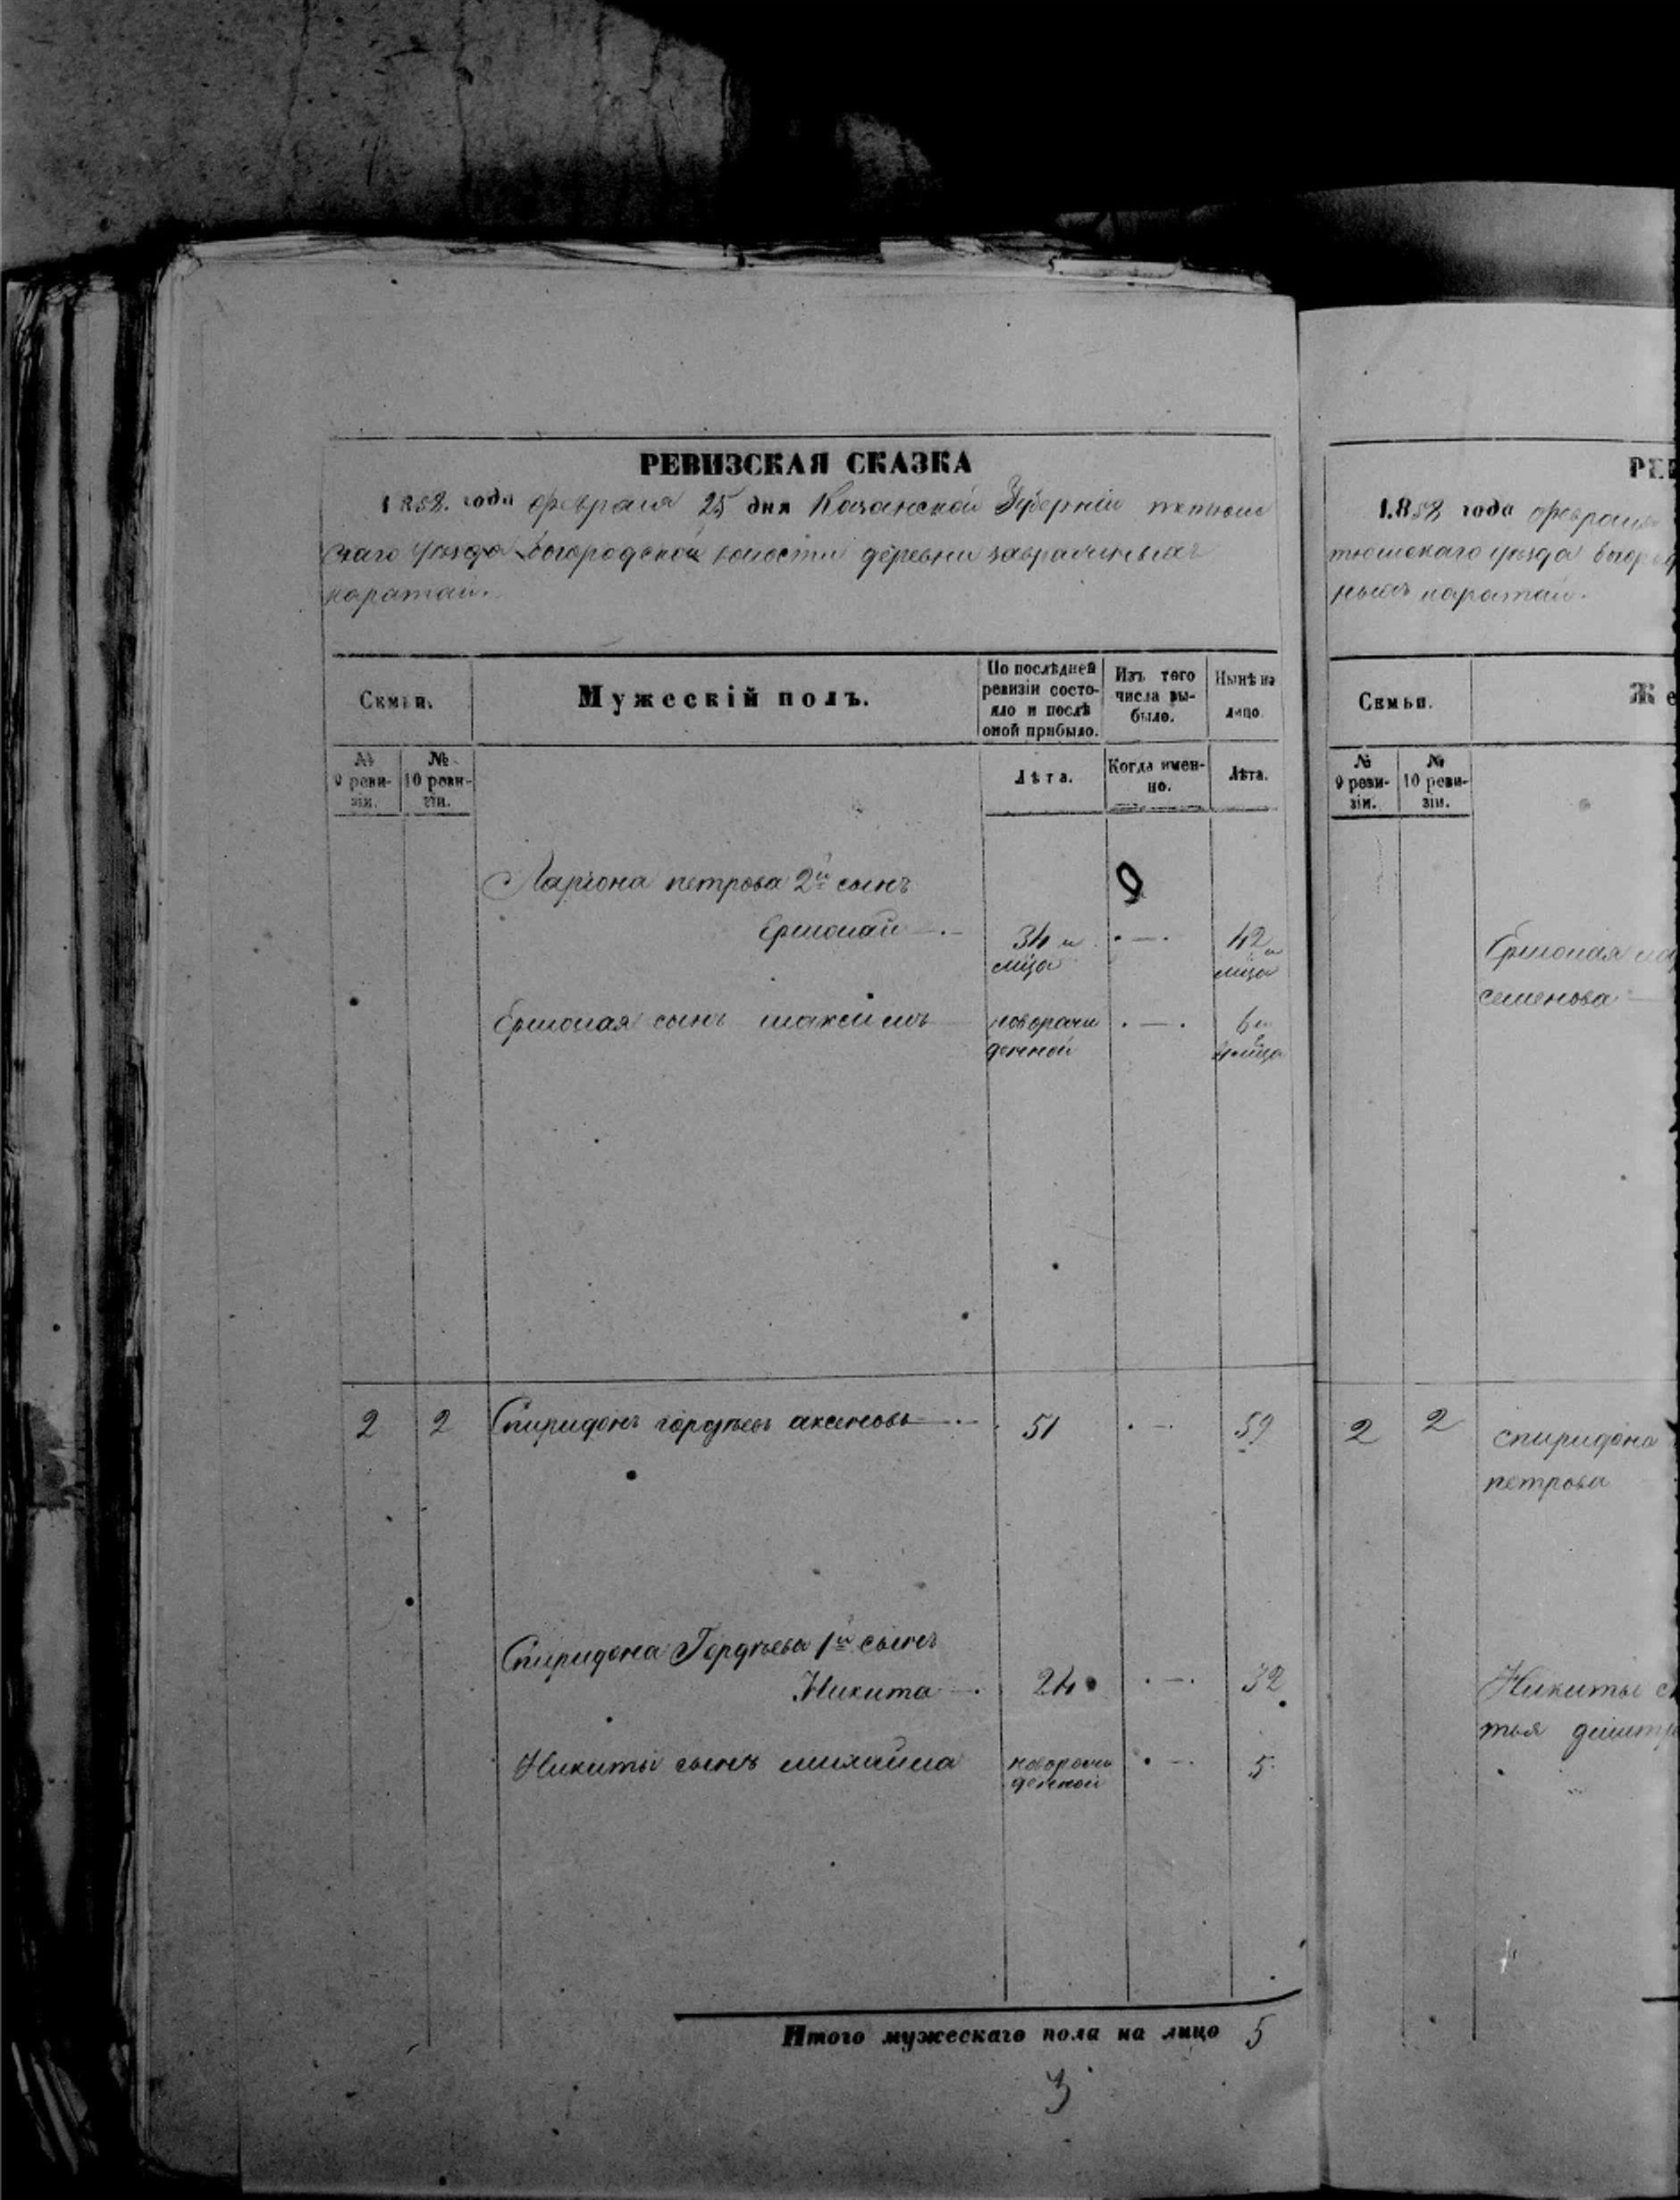 РЕВИЗСКАЯ СКАЗКА
1858. года февраля 25 дня Казанской Губерніи тетюш
скаго уѣзда богородской волости деревни
каратаи.
Семьи.
Мужескій полъ.
По послѣдней ревизіи состояло и послѣ оной прибыло.
Изъ того числа выбыло.
Нынѣ на лицо.
№ 9 ревизіи.
№ 10 ревизіи.
Лѣта.
Когда именно.
Лѣта.
Ларіона петрова 2й сынъ 9
Ермолай 34 42
Ермолая сынъ максимъ новорожденной 6
2 2 Спиридонъ гордѣевъ аксеновъ 51 59
Спиридона Гордѣева 1й сынъ
Никита 24 32
Никиты сынъ михайла новорожденной 5
Итого мужескаго пола на лицо 5
3
1.858 года февраля
тюшскаго уѣзда богород
ныхъ каратаи.
Семьи.
Же
№ 9 ревизіи.
№ 10 ревизіи.
Ермолая
семенова
2 2 спиридона
петрова
Никиты
тья